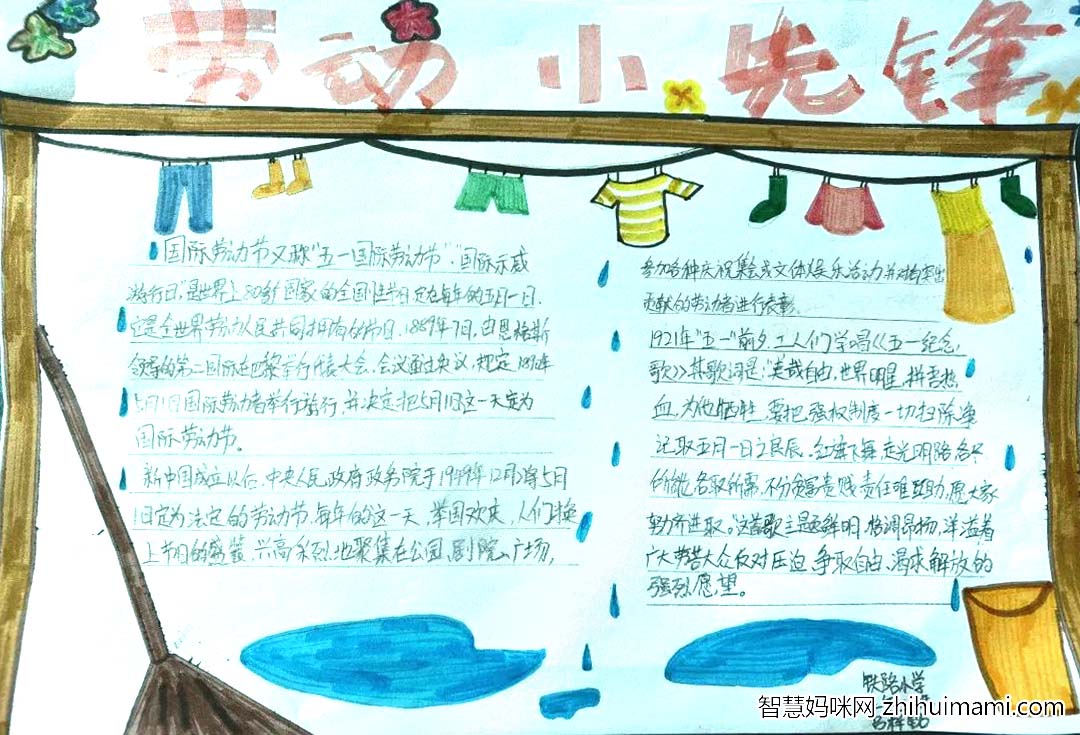 劳动小先锋
国际劳动节又称"五一国际劳动节"."国际示威
游行日"是世界上80多个国家的全国性节日.定在每年的五月一日.
它是全世界劳动人民共同拥有的节日.1889年7月,由恩格斯
领导的第二国际在巴黎举行代表大会.会议通过决议,规定1890年
5月1日国际劳动者举行游行,并决定把5月1日这一天定为
国际劳动节。
新中国成立以后.中央人民政府政务院于1949年12月将5月
1日定为法定的劳动节,每年的这一天,举国欢庆,人们换
上节日的盛装,兴高采烈地聚集在公园、剧院、广场,
参加各种庆祝集会或文体娱乐活动,并对有突出
贡献的劳动者进行表彰.
1921年"五一"前夕,工人们学唱《五一纪念
歌》其歌词是:"美哉自由,世界明星,拼吾热
血,为他牺牲,要把强权制度一切扫除净
记取五月一日之良辰.红旗飞舞,走光明路,各尽
所能,各取所需,不分贫富贵贱,责任唯互助,愿大家
努力齐进取。"这首歌主题鲜明,格调昂扬,洋溢着
广大劳苦大众反对压迫、争取自由、渴求解放的
强烈愿望。
铁路小学
智慧妈咪网 zhihuimami.com